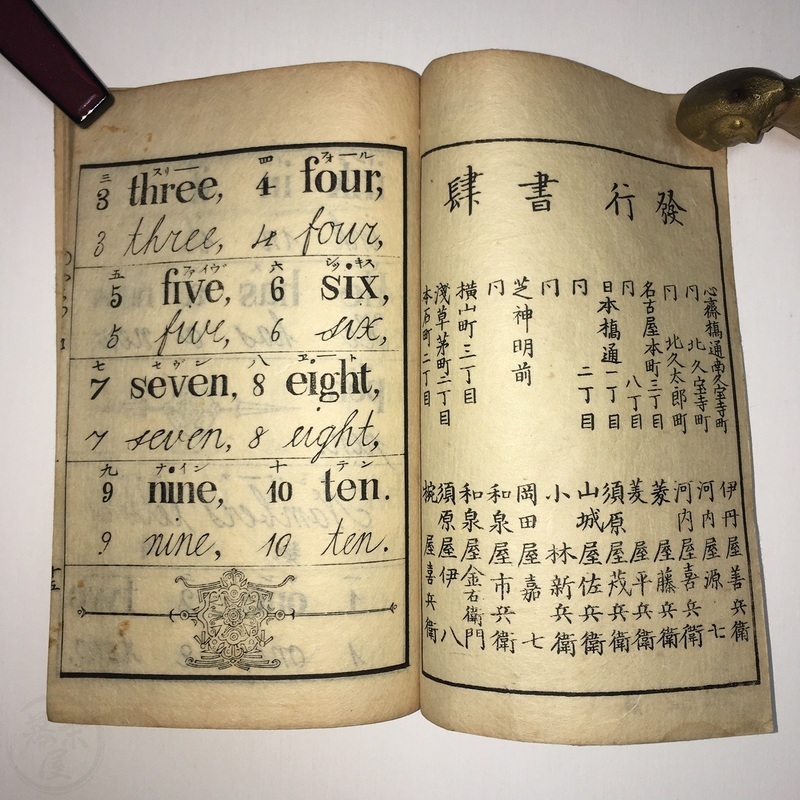 三 スリー 四 フォール
3 three, 4 four,
3 three, 4 four,
五 ファイヴ 六 シッキス
5 five, 6 six,
5 five, 6 six,
七 セヴン 八 エート
7 seven, 8 eight,
7 seven, 8 eight,
九 ナイン 十 テン
9 nine, 10 ten.
9 nine, 10 ten.
發行書肆
心齋橋通南久宝寺町 伊丹屋善兵衛
同 北久宝寺町 河内屋源七
同 北久太郎町 河内屋喜兵衛
名古屋本町三丁目 菱屋藤兵衛
同 八丁目 菱屋平兵衛
日本橋通一丁目 須原屋茂兵衛
同 二丁目 山城屋佐兵衛
同 小林新兵衛
芝神明前 岡田屋嘉七
同 和泉屋市兵衛
横山町三丁目 和泉屋金右衛門
淺草茅町二丁目 須原屋伊八
本石町二丁目 椀屋喜兵衛